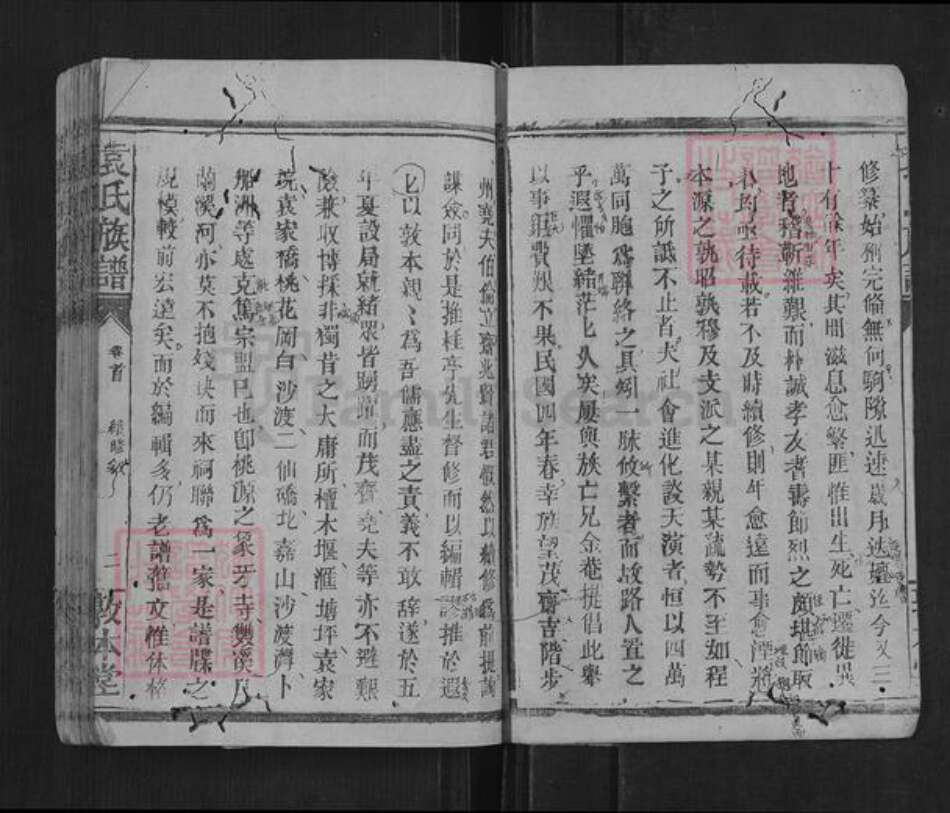 修纂始刱完備無何駒隙迅速歲月迭遷迄今又三
十有餘年矣其間滋息愈繁匪惟出生死亡遷徙異
地者稽覈維艱而朴誠孝友耆壽節烈之頗堪節取
者均亟待載若不及時續修則年愈遠而事愈湮將
本源之孰昭孰穆及支派之某親某疏勢不至如程
子之所詆不止者夫社會進化談天演者恒以四萬
萬同胞為聯絡之具矧一脉攸繫者而故路人置之
乎遐懼墜緒茫茫久矣屢與族亡兄金菴提倡此舉
以事鉅費艱不果民國四年春幸族望茂齋吉階步
州堯夫伯倫立齋兆賢諸君慨然以續修為前提謀
謀僉同於是推桂亭先生督修而以編輯 推於遐
以敦本親親為吾儒應盡之責義不敢辞遂於五
年夏設局就緒眾皆踴躍而茂齋堯夫等亦不避艱
險兼收博採非獨昔之大庸所檀木堰滙塘坪袁家
垸袁家橋桃花岡白沙渡二仙礄北嘉山沙渡灣卜
船洲等處克篤宗盟已也即桃源之象牙寺雙溪及
蘭溪河亦莫不抱殘訣而來祠聯為一家是譜牒之
規模較前宏遠矣而於編輯多仍老譜舊文惟休格
袁氏族譜
卷首
續修敘
二
敦本堂